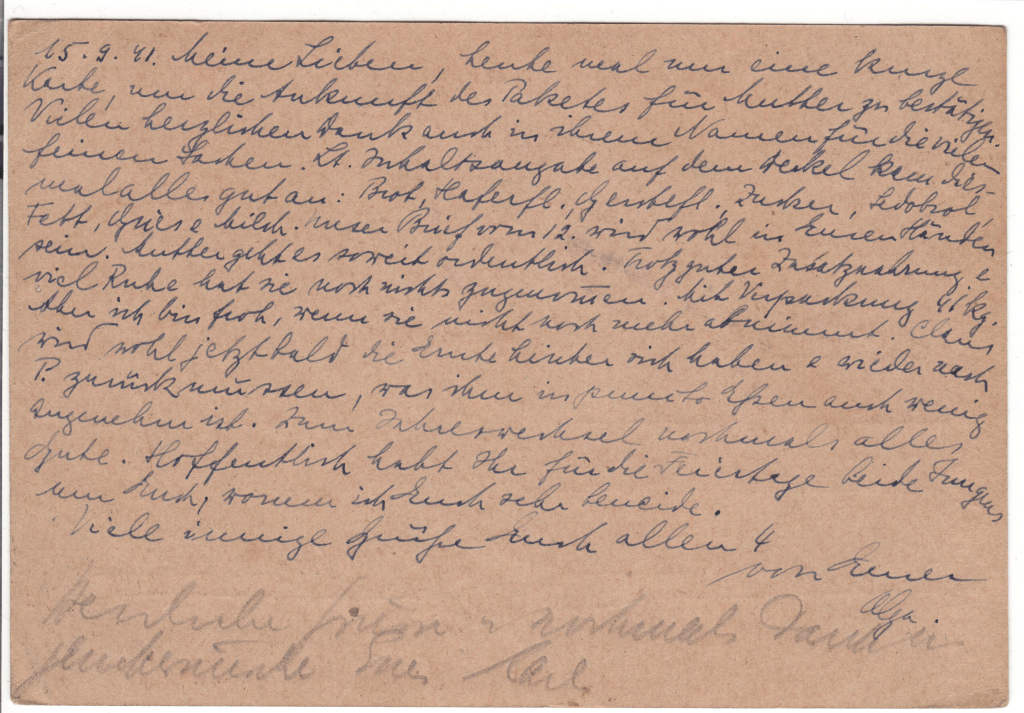 15.9.41. Meine Lieben, heute mal nur eine kurze
Karte, um die Ankunft des Paketes für Mutter zu bestätigen.
Vielen herzlichen Dank auch in ihrem Namen für die vielen
feinen Sachen. Lt. Inhaltsangabe auf dem Deckel kam dies-
mal alles gut an: Brot, Haferfl., Gerstefl., Zucker, Ledobrol,
Fett, Gries e Milch. Unser Brief vom 12. wird wohl in Euren Händen
sein. Mutter geht es soweit ordentlich. Trotz guter Zusatznahrung e
viel Ruhe hat sie noch nichts zugenommen. Mit Verpackung 41 kg.
Aber ich bin froh, wenn sie nicht noch mehr abnimmt. Claus
wird wohl jetzt bald die Ernte hinter sich haben e wieder nach
P. zurück müssen, was ihm in puncto Essen auch wenig
angenehm ist. Zum Jahreswechsel nochmals alles
Gute. Hoffentlich habt Ihr für die Feiertage beide Jungens
um Euch, worum ich Euch sehr beneide.
Viele innige Grüße Euch allen 4
von Eurer
Olga
Herzliche Grüsse u nochmals Dank u
Glückwünsche Euer Carl.